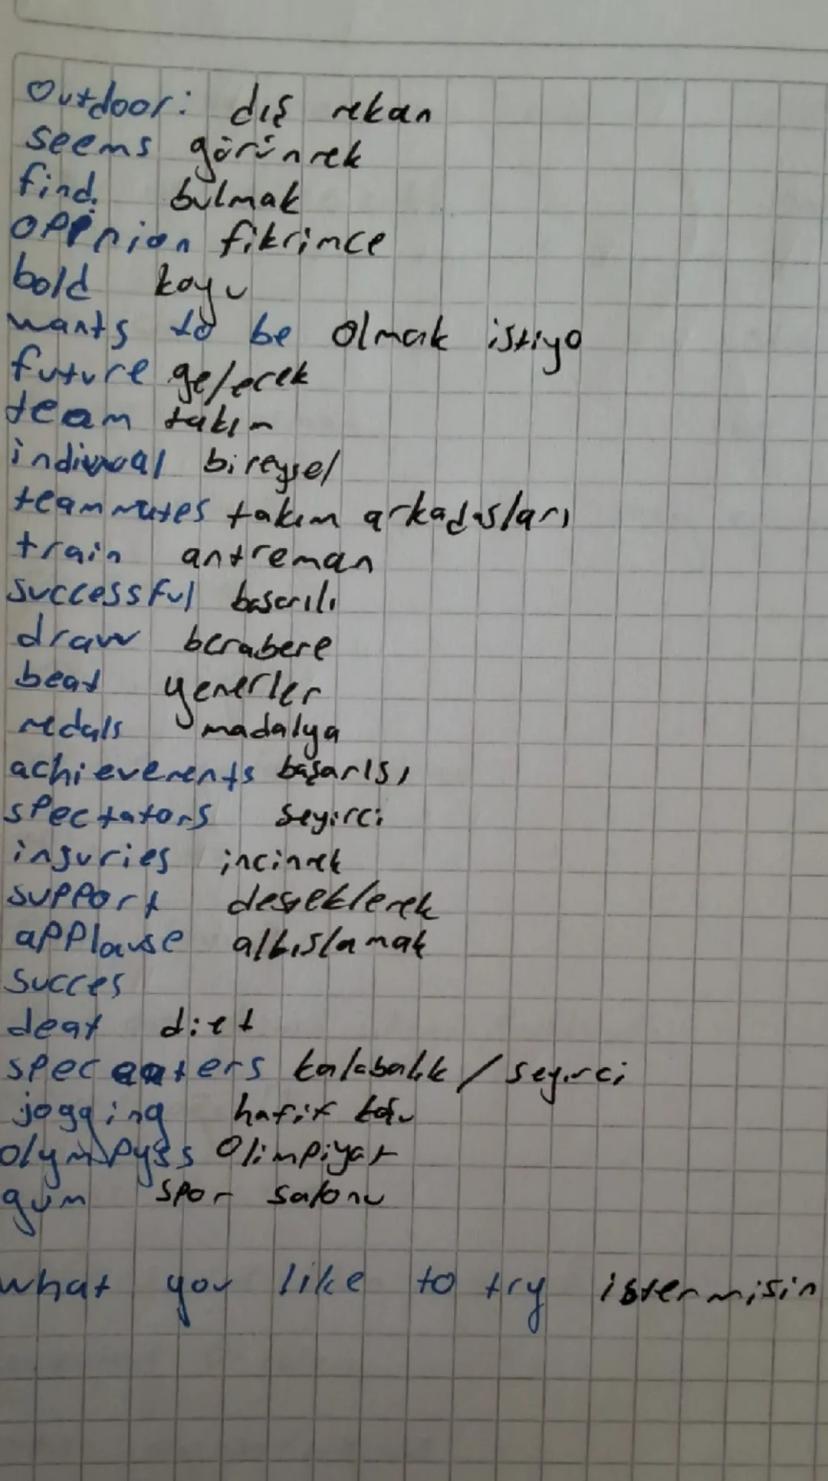 Outdoor: dış mekan
seems görünmek
find. bulmak
oppinion fikrimce
bold koyu
wants to be olmak istiyo
future gelecek
team takım
indivual bireysel
teammates takım arkadaşları
train antreman
successful başarılı
draw berabere
beat yenerler
medals madalya
achievements başarısı
spectators seyirci
injuries incinmek
support desteklemek
applause alkışlamak
succes
deat diet
spec ters kalabalık / seyirci
jogging hafif koşu
olympyss Olimpiyat
gym spor salonu
what you like to try istermisin